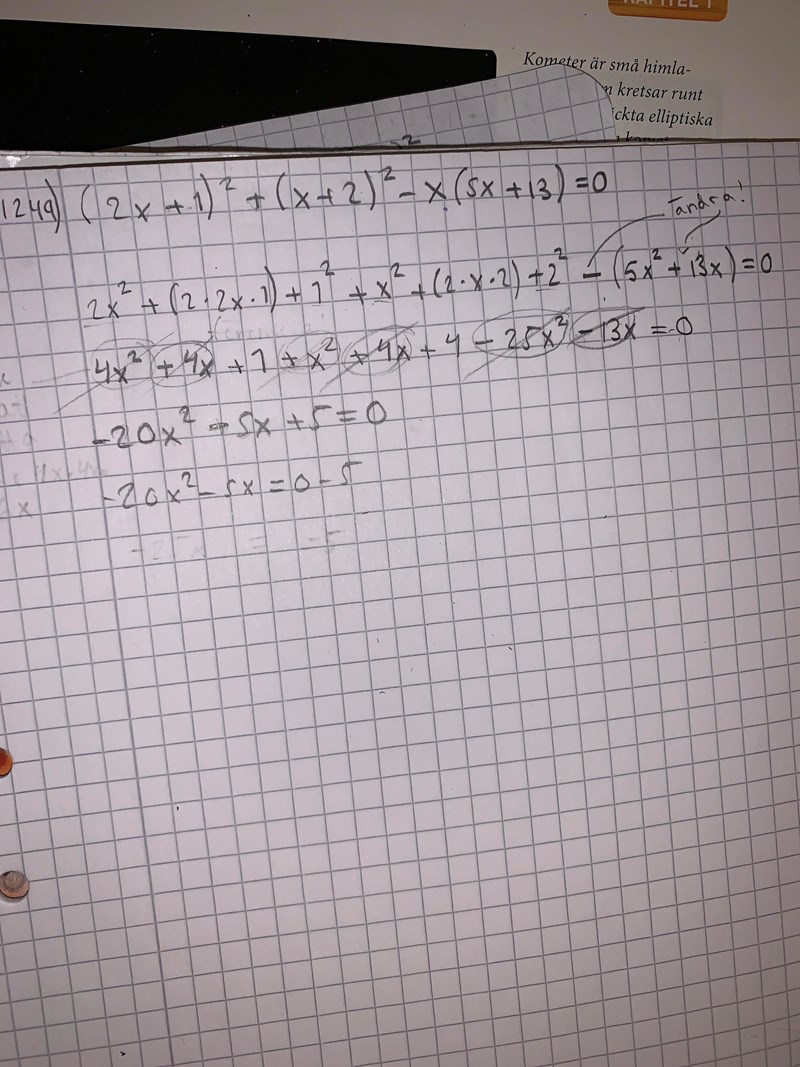 KAPITEL 1
Kometer är små himla-
n kretsar runt
ckta elliptiska
1249) (2x+1)² + (x+2)² - x(5x+13) = 0
Tändra!
2x² + (2·2x·1) + 1² + x² + (2·x·2) + 2² - (5x² + 13x) = 0
4x² + 4x + 1 + x² + 4x + 4 - 25x² - 13x = 0
-20x² - 5x + 5 = 0
-20x² - 5x = 0 - 5